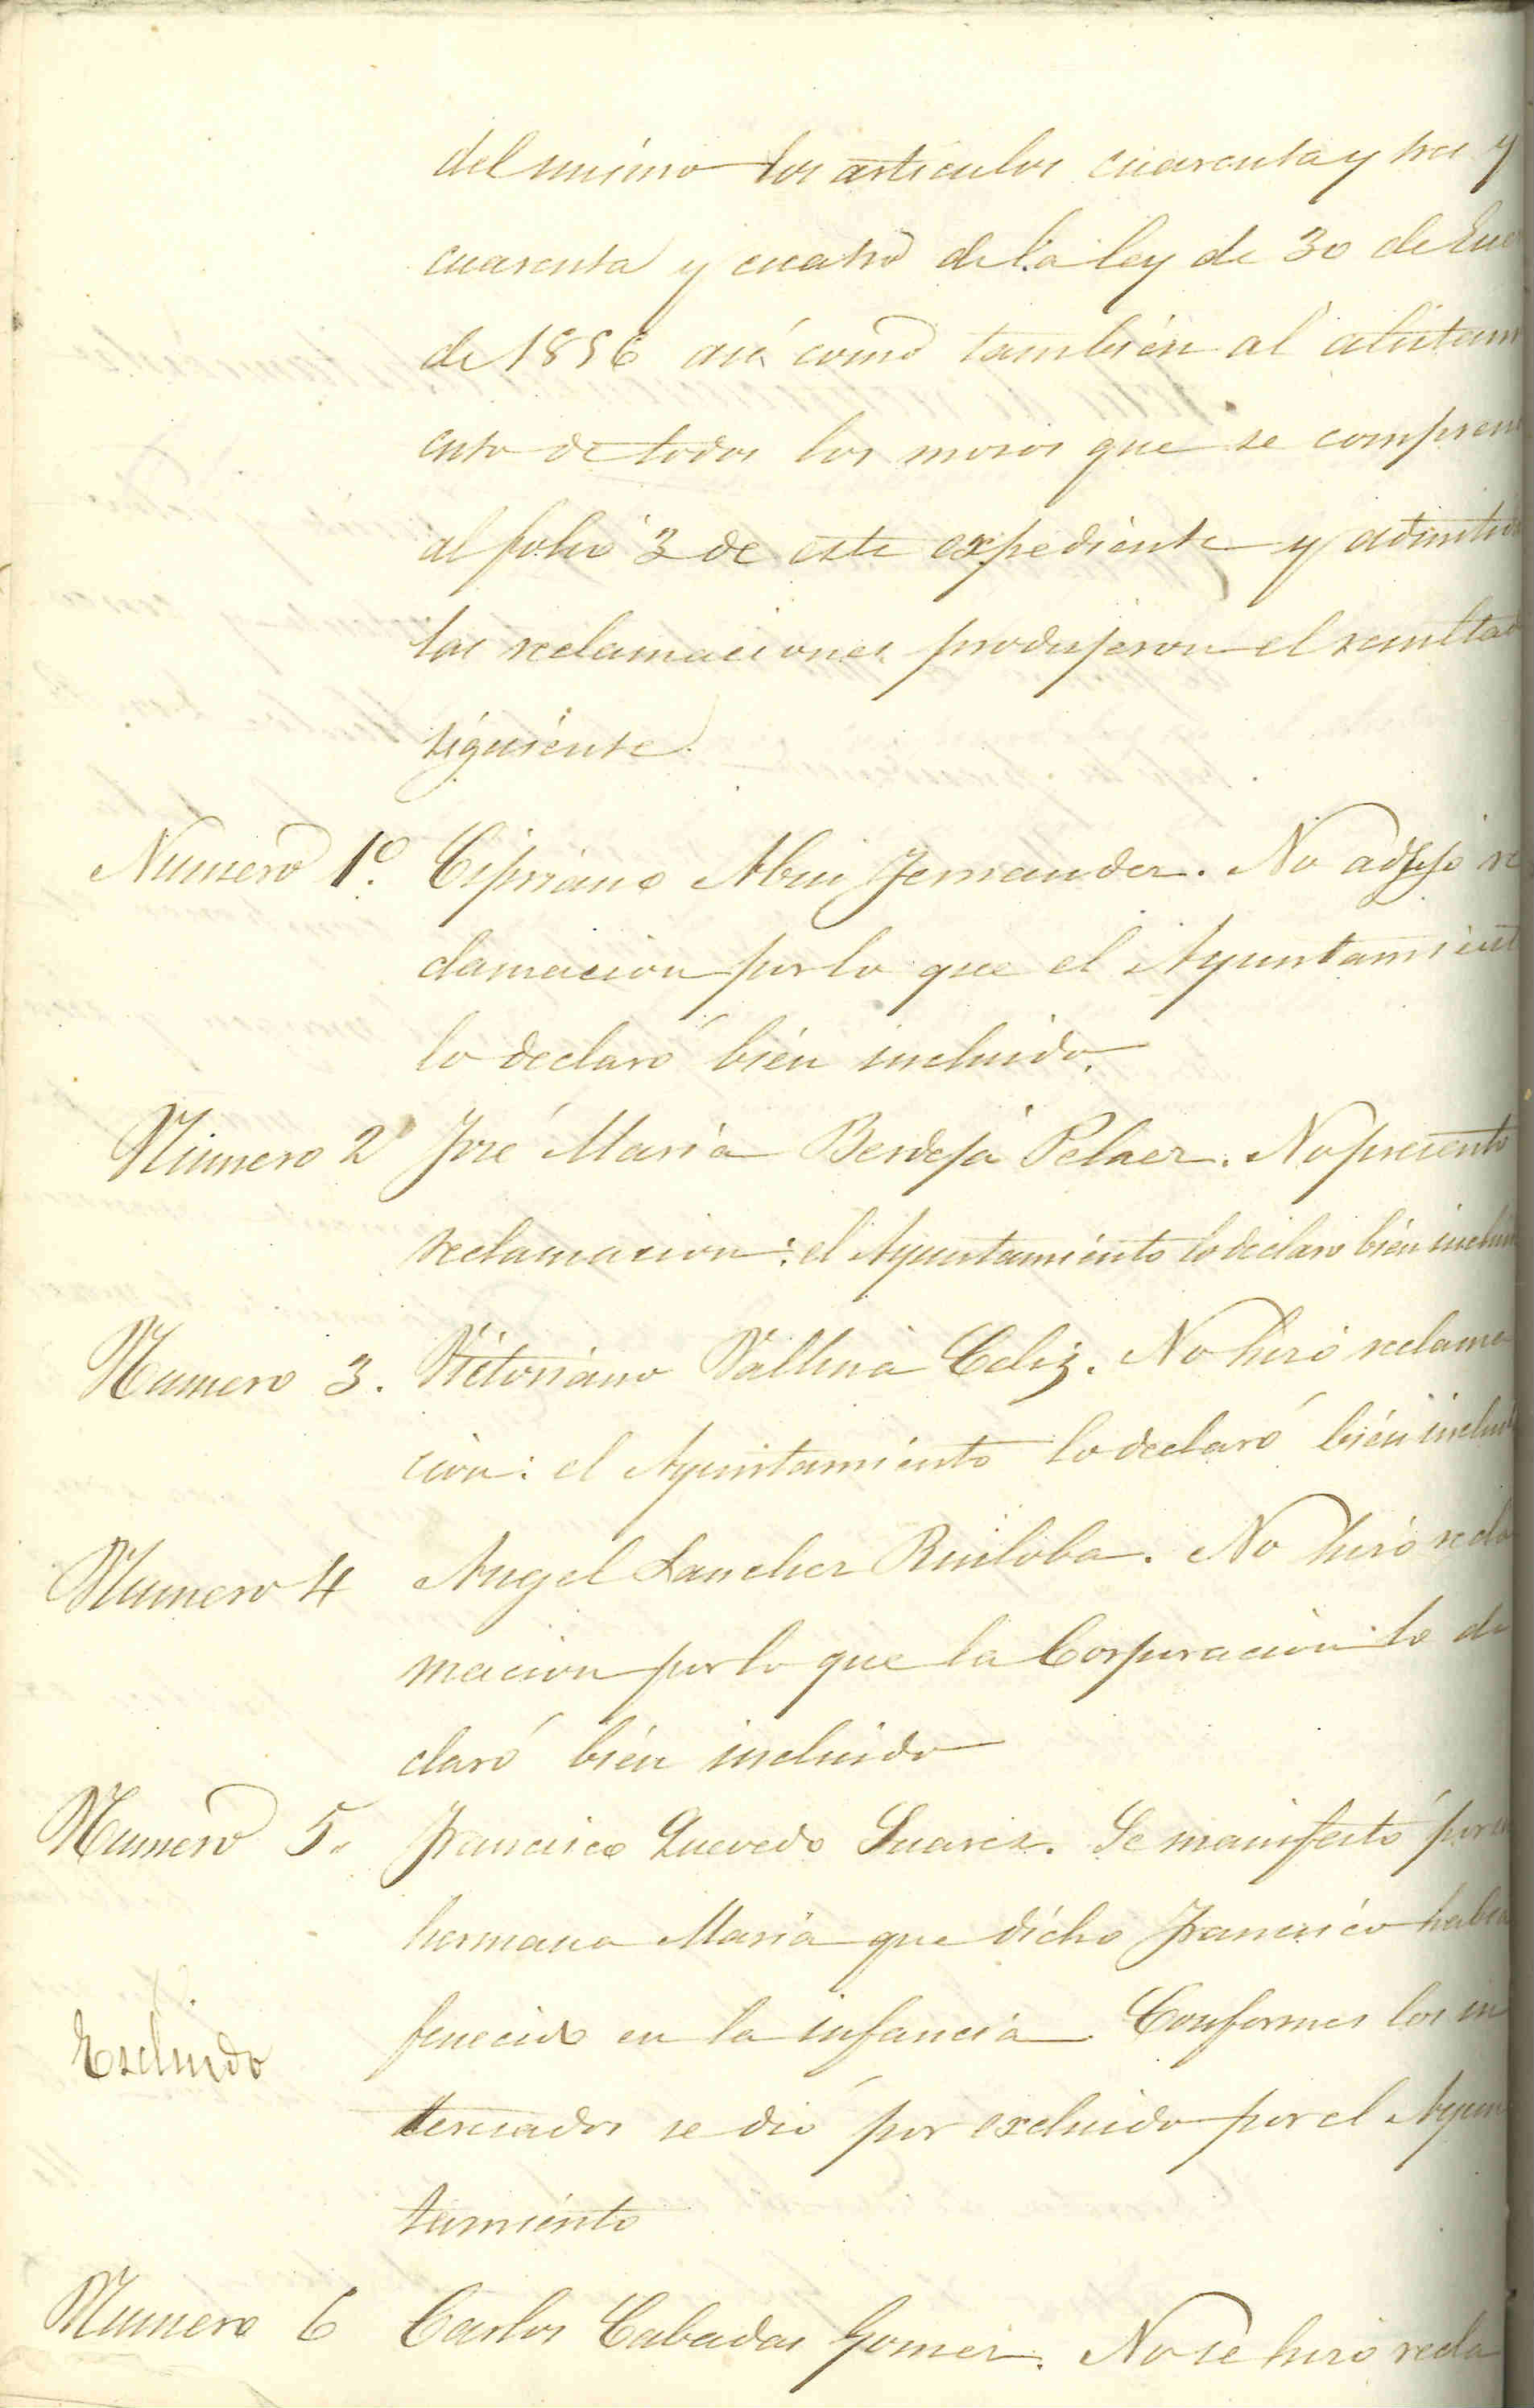 del mismo los articulos cuarenta y tres y
cuarenta y cuatro de la ley de 30 de Ene
de 1856 así como también al alistami
ento de todos los mosos que se compren
al folio 3 de este expediente y admitid
las reclamaciones produjeron el resultad
siguiente.
Numero 1º. Cipriano Abin Fernandez. No adujo re
clamacion por lo que el Ayuntamient
lo declaró bién incluido.
Número 2 José Maria Berdeja Pelaez. No presento
reclamacion: el Ayuntamiento lo declaro bién inclui
Numero 3. Victoriano Vallina Celiz. No hizo reclama
cion: el Ayuntamiento lo declaró bién inclui
Numero 4 Angel Sanchez Ruiloba. No hizo recla
macion por lo que la Corporacion lo de
claró bién incluido
Numero 5. Francisco Quevedo Suarez. Se manifestó por su
hermana Maria que dicho Francisco habia
fenecido en la infancia Conformes los in
Excluido
teresados se dió por excluido por el Ayun
tamiento
Numero 6 Carlos Cabadas Gomez. No se hizo recla